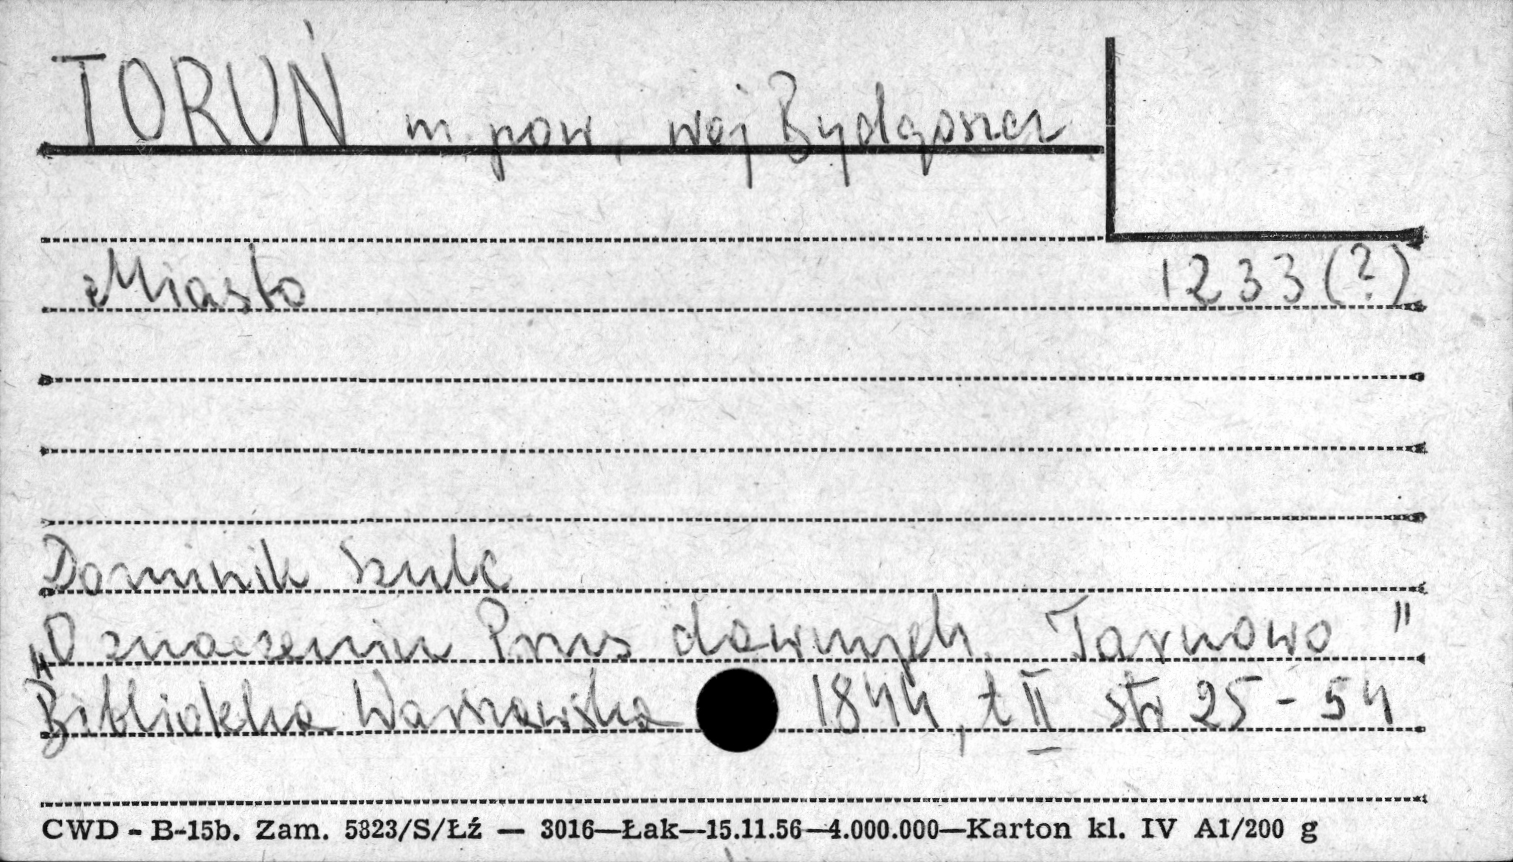 TORUŃ m. pow, woj Bydgoszcz
Miasto 1233 (?)
Dominik Szulc
„O znaczeniu Prus dawnych. Tarnowo"
Biblioteka Warszawska 1844, t II str 25 - 54
CWD - B-15b. Zam. 5823/S/Łź — 3016—Łak—15.11.56—4.000.000—Karton kl. IV A1/200 g